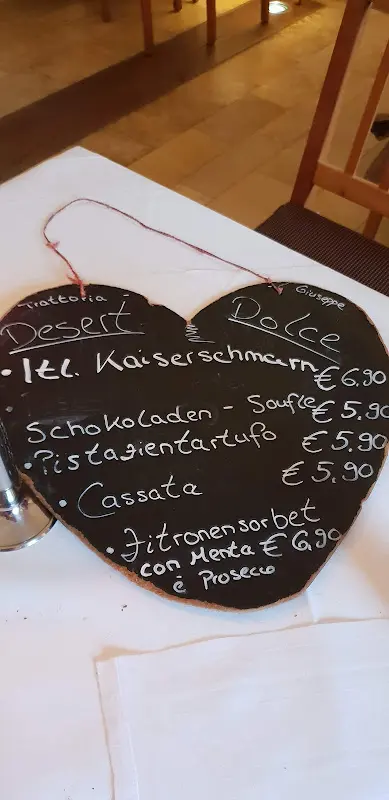 Trattoria - Giuseppe
Desert Dolce
• Itl. Kaiserschmarn € 6.90
• Schokoladen - Soufle € 5.90
• Pistazientartufo € 5.90
• Cassata € 5.90
• Zitronensorbet
con Menta € 6,90
è Prosecco